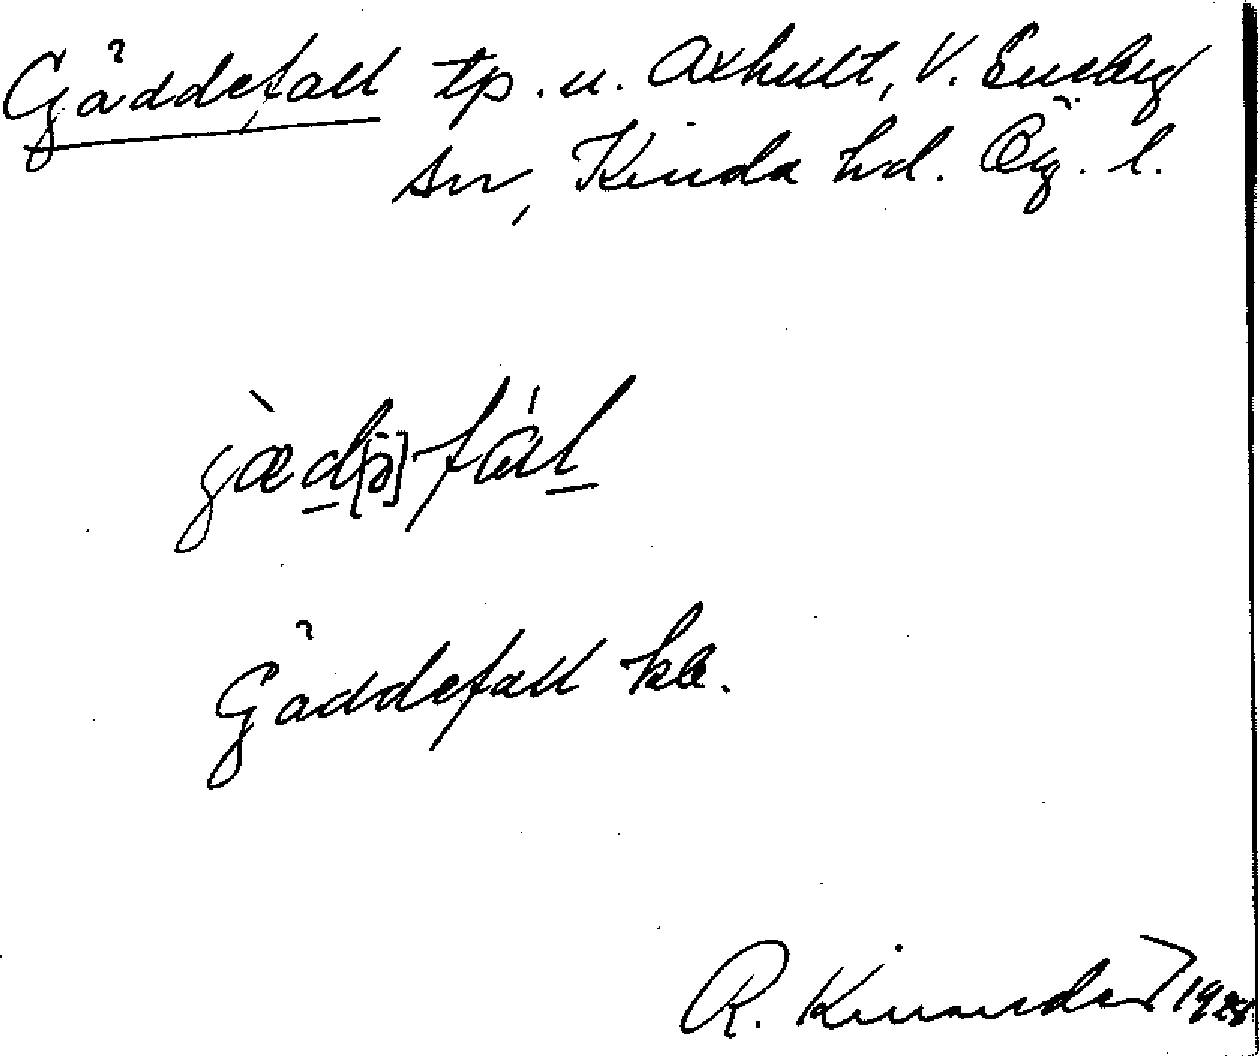 Gäddefall tp. u. Axhult, V. Eneby
sn, Kinda hd. Ög. l.
jæd[ə]fal
Gäddefall ka.
R. Kinander 1928